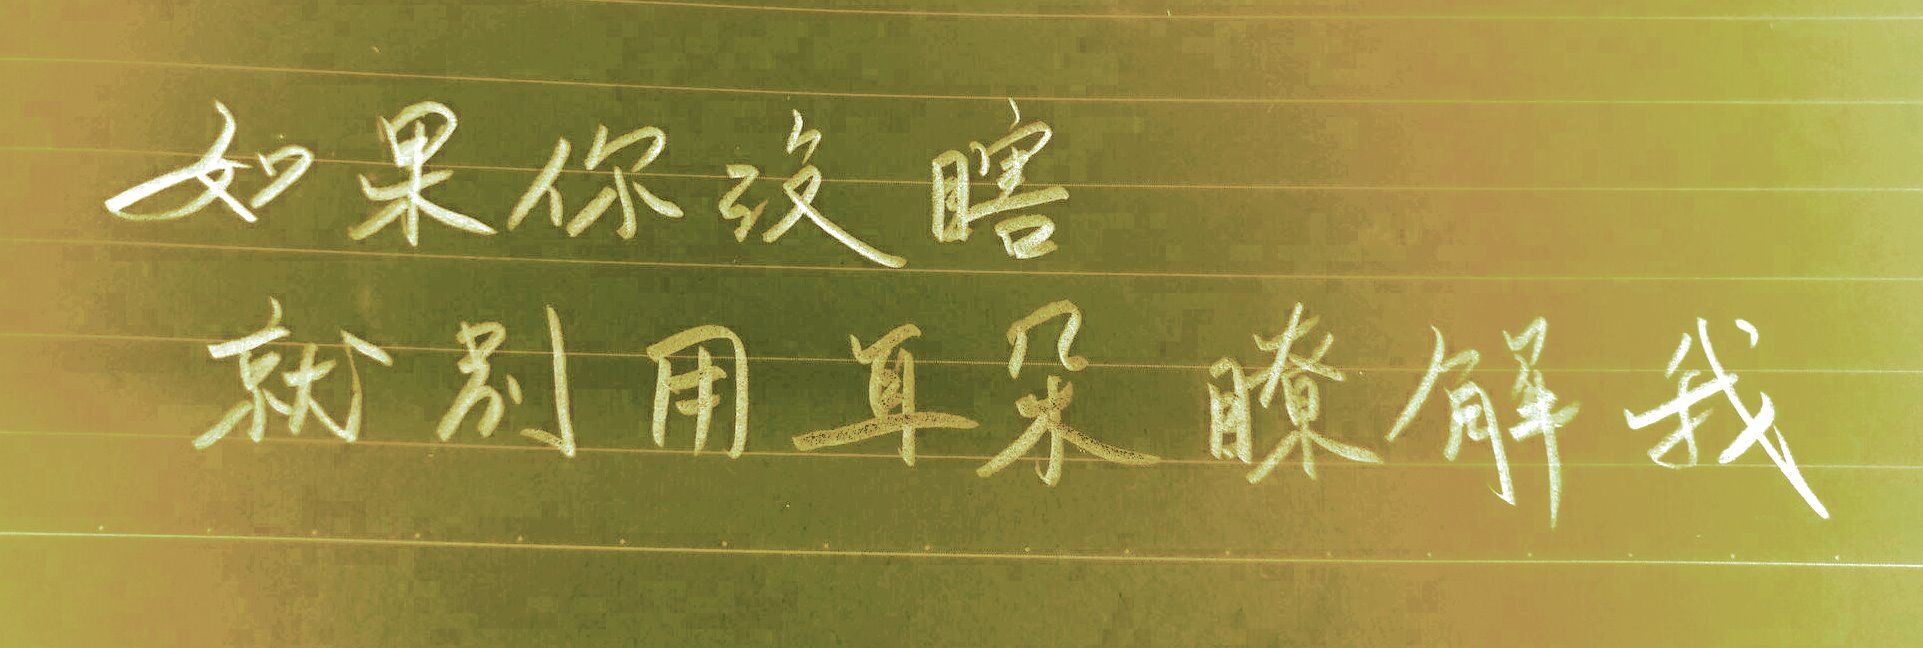 如果你没瞎
就别用耳朵瞭解我